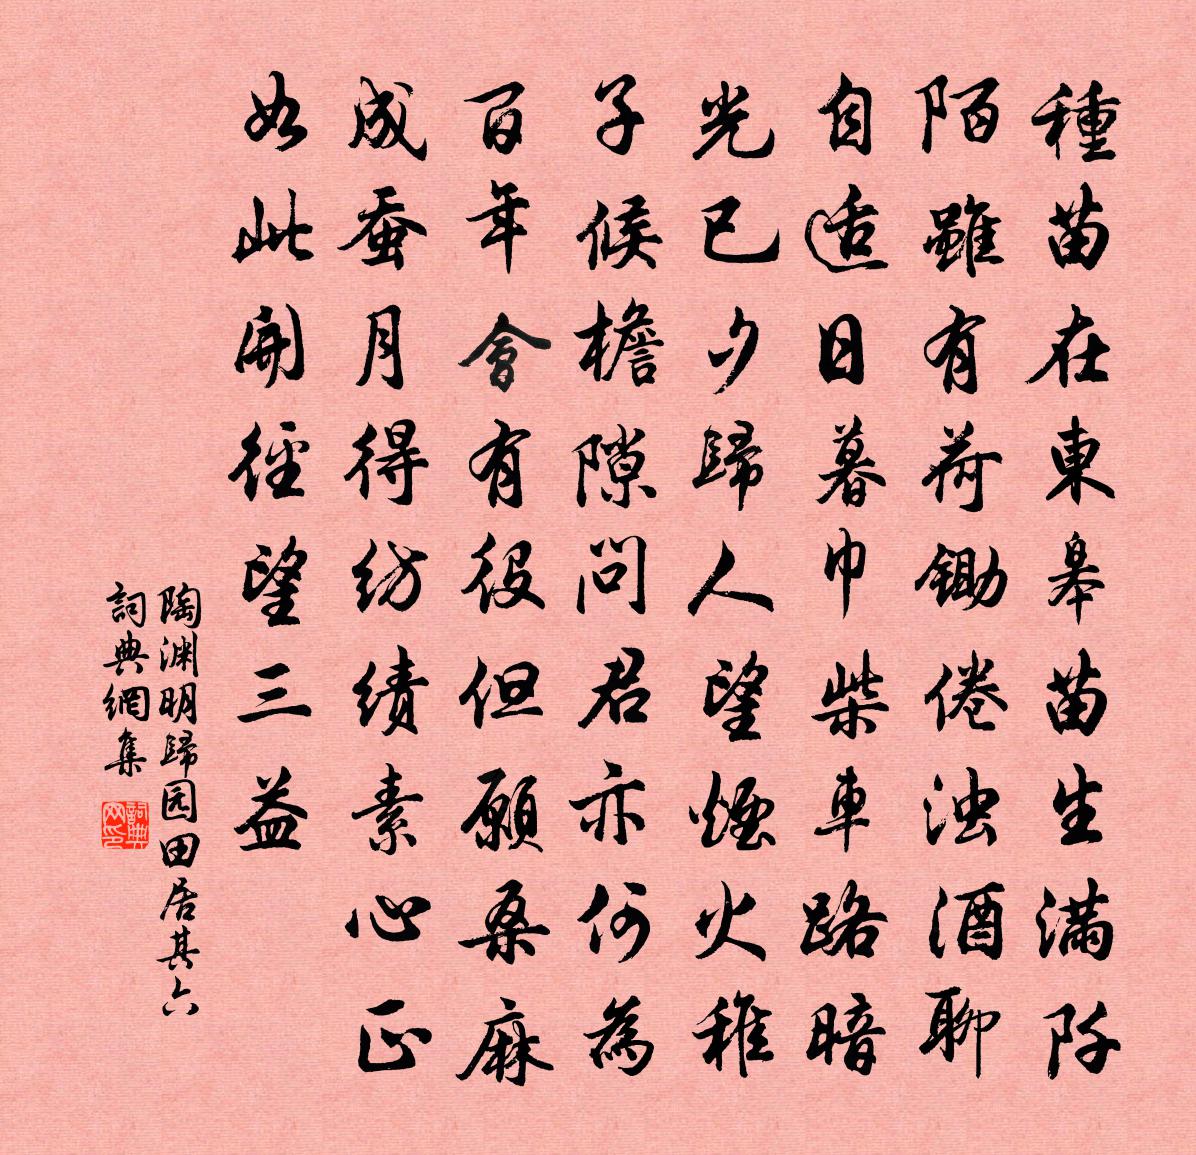 種苗在東皋苗生滿阡
陌雖有荷鋤倦浊酒聊
自适日暮巾柴車路暗
光已夕歸人望煙火稚
子候檐隙問君亦何為
百年會有役但願桑麻
成蚕月得纺績素心正
如此開徑望三益
陶渊明歸园田居其六
詞典網集
詞典网印